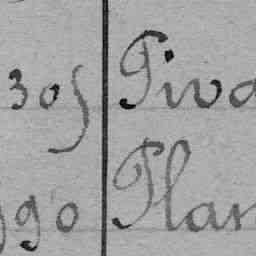 305 Piva
90 Plan